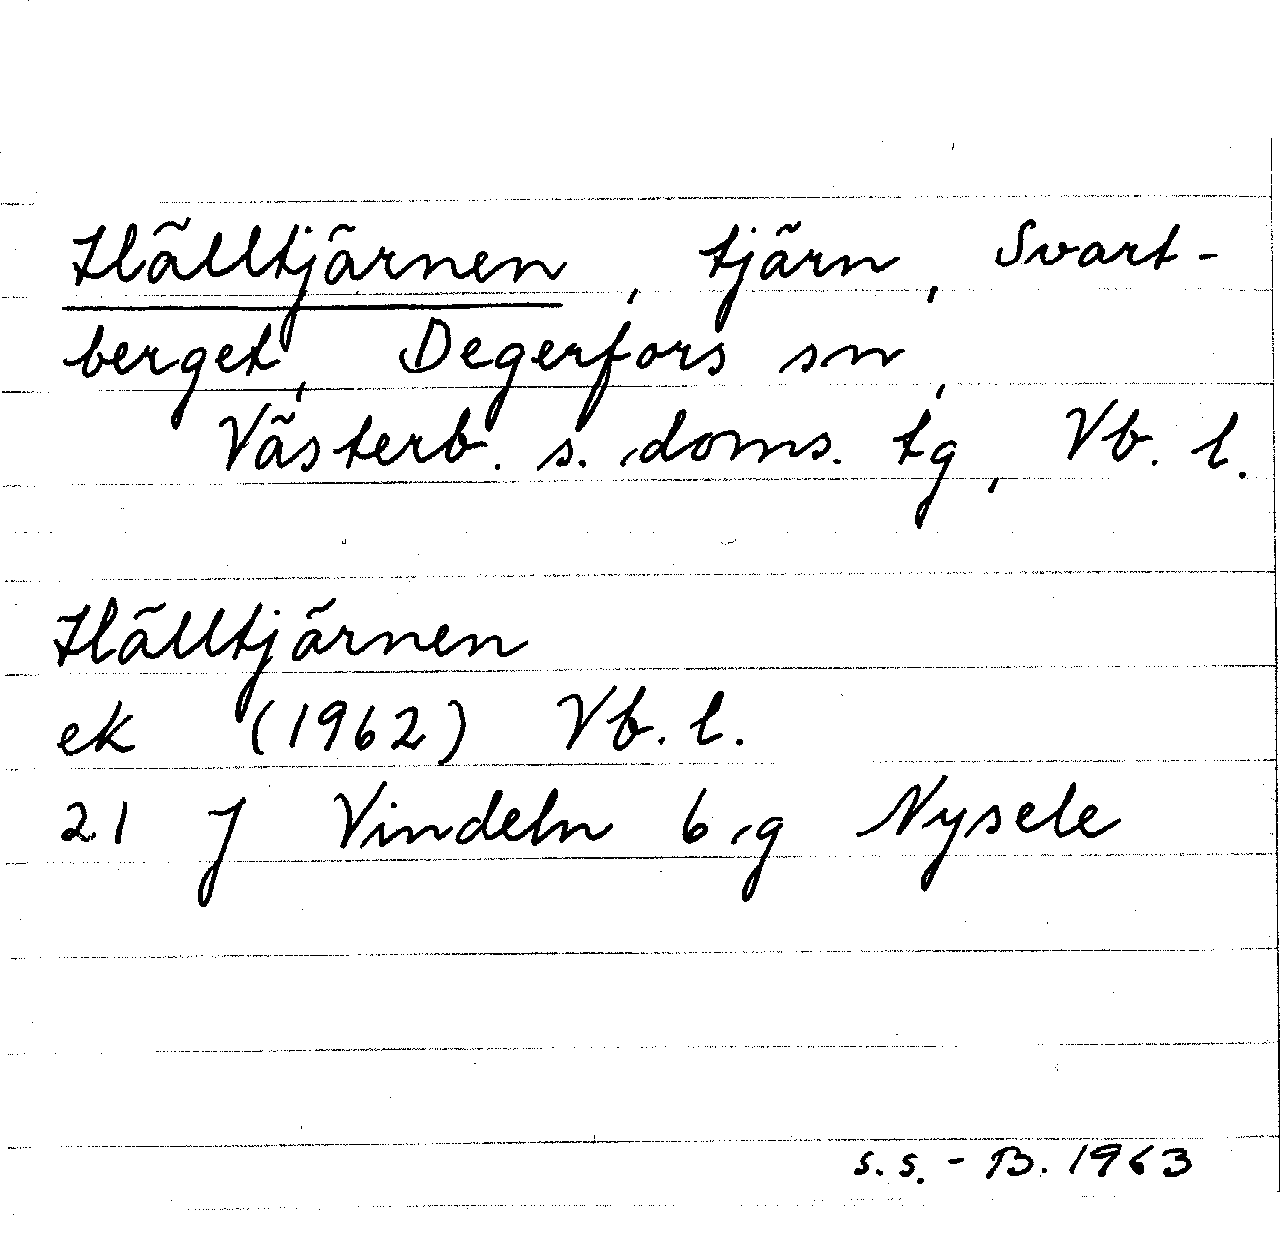 Hälltjärnen, tjärn, Svart-
berget, Degerfors sn,
Västerb. s. doms. tg, Vb. l.
Hälltjärnen
ek (1962) Vb. l.
21 J Vindeln 6 g Nysele
s.s. - B. 1963